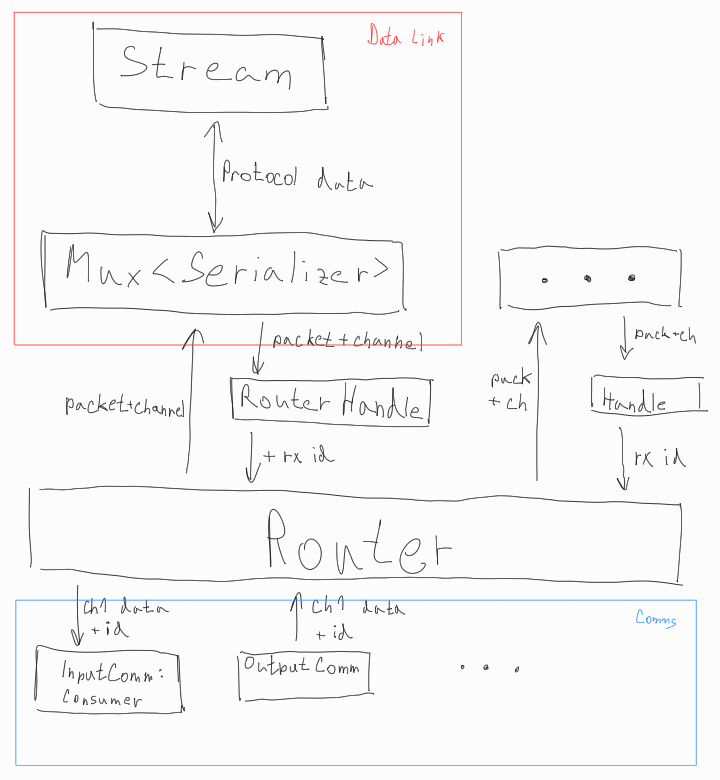 Data Link
Stream
Protocol data
Mux<Serializer>
packet+channel
packet+channel
Router Handle
+ rx id
pack+ch
pack
+ ch
Handle
rx id
Router
ch1 data
+ id
ch1 data
+ id
Comms
InputComm:
Consumer
OutputComm